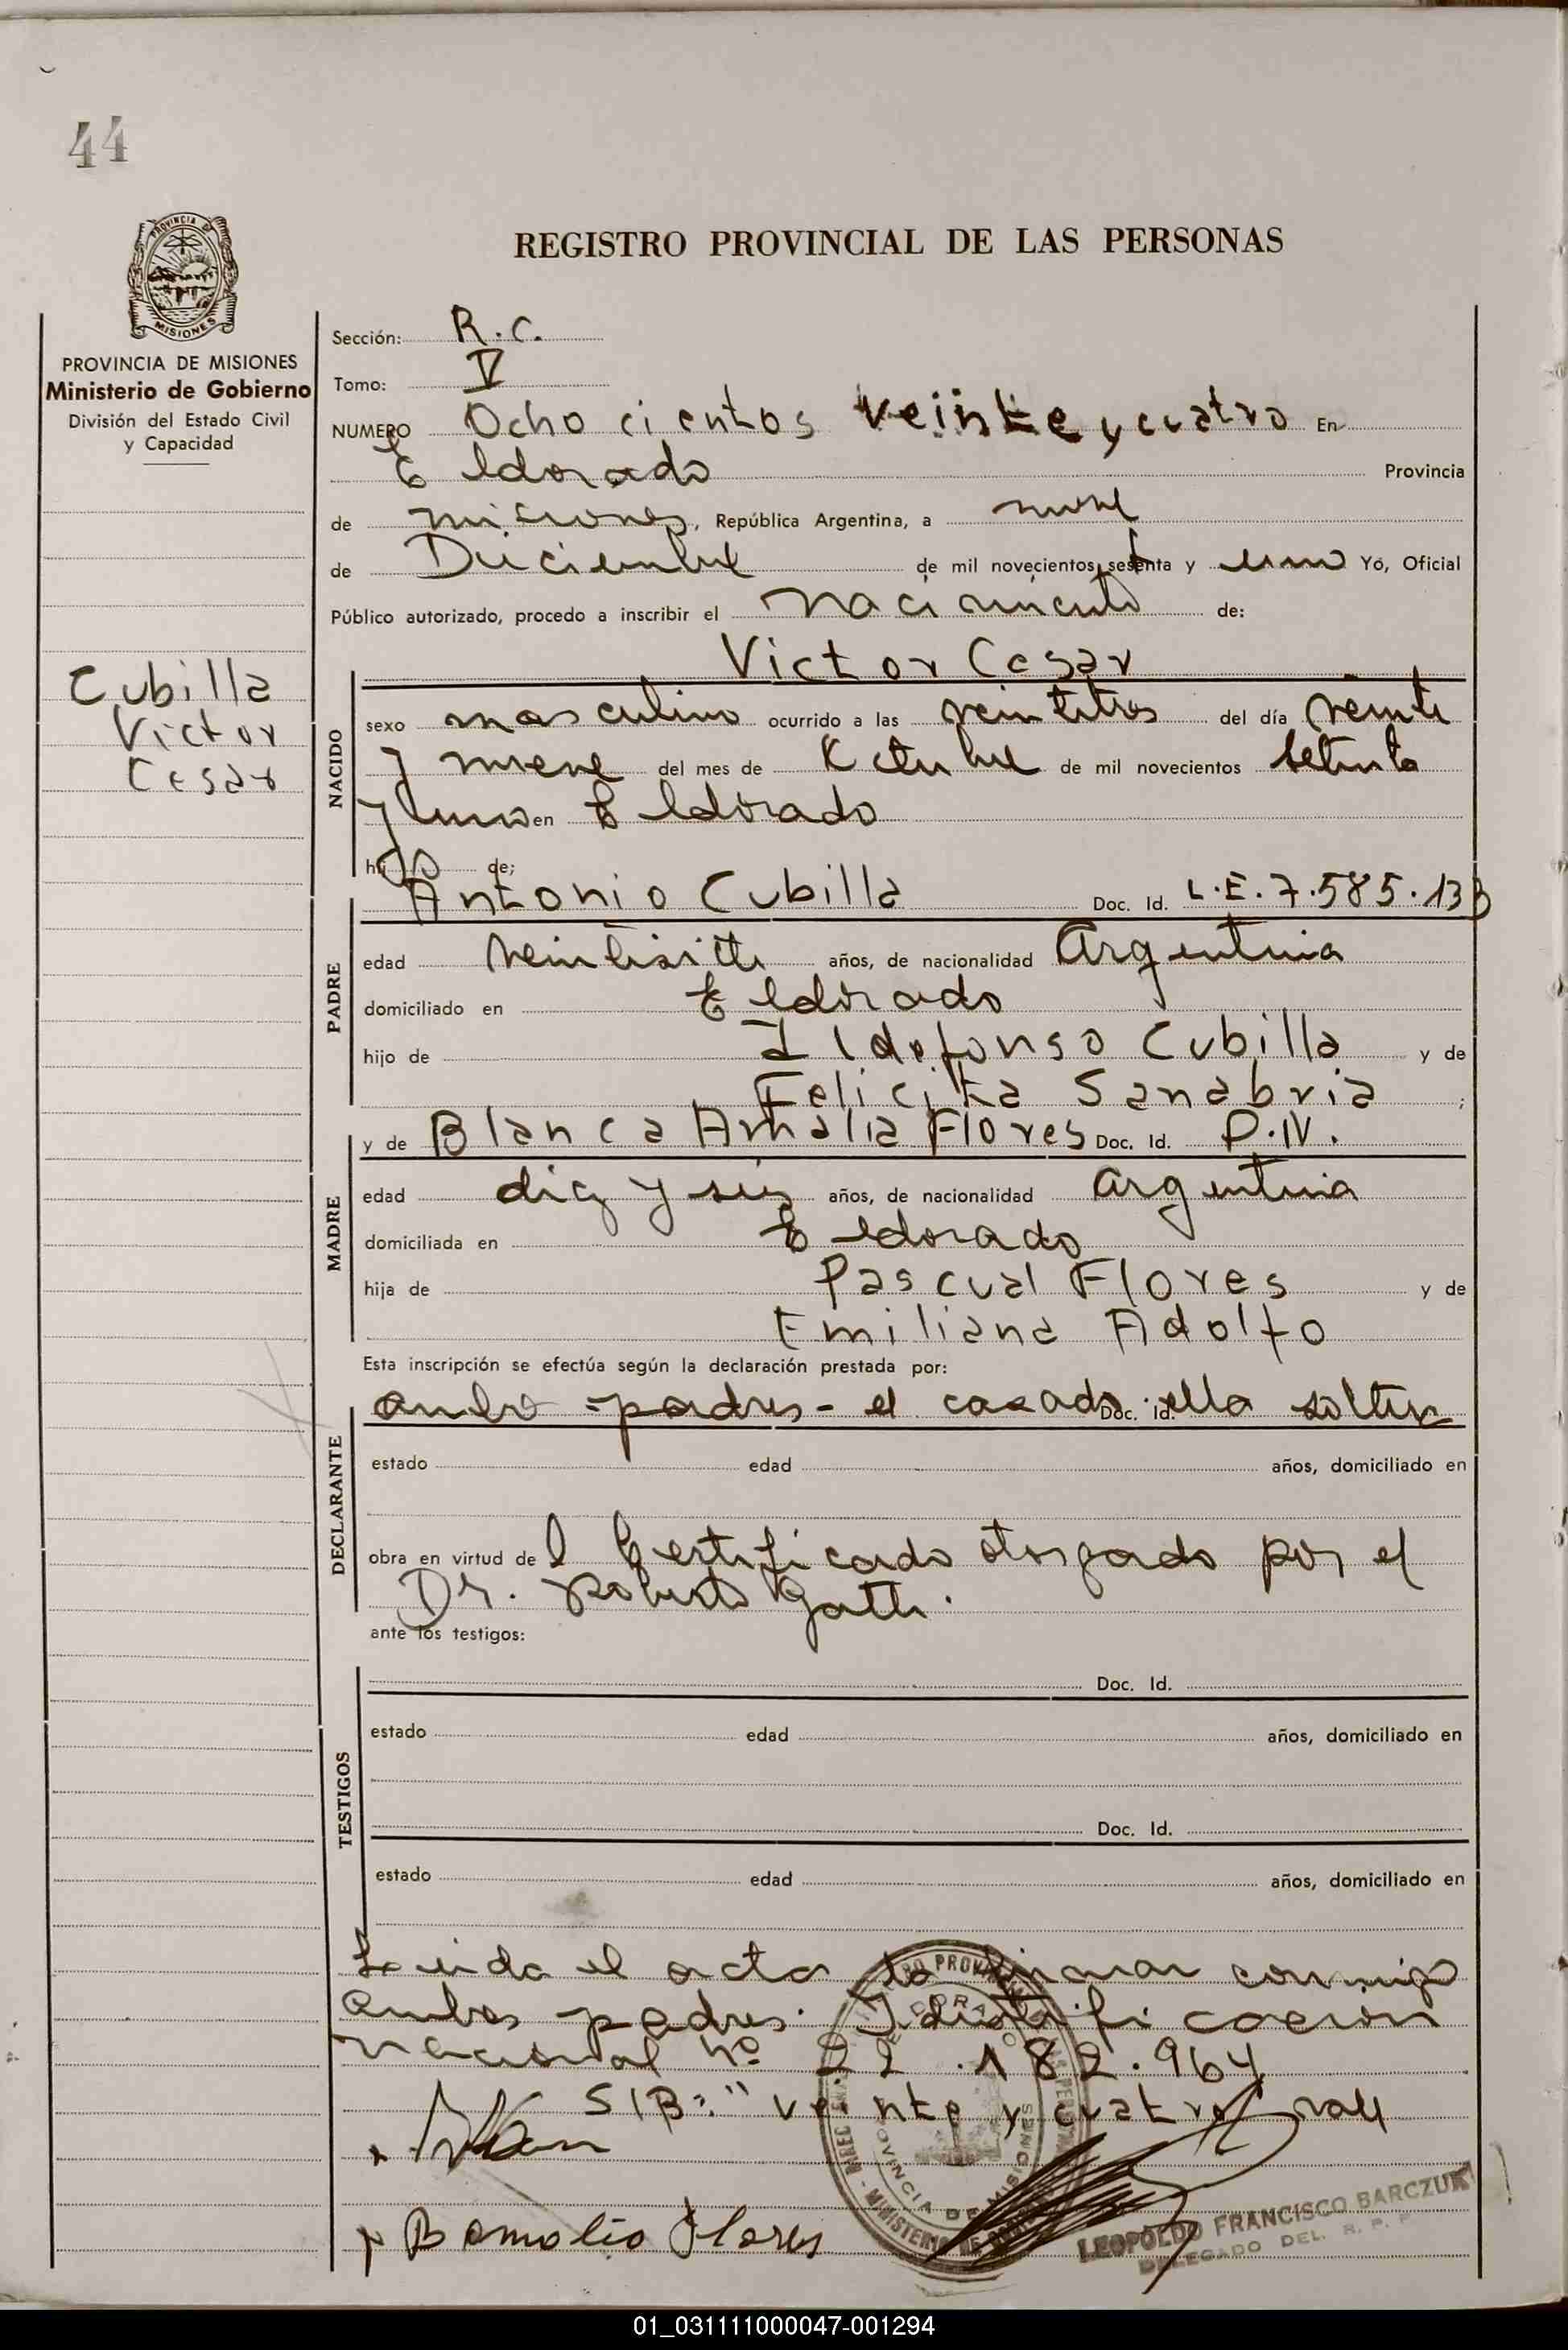 44
PROVINCIA DE
MISIONES
PROVINCIA DE MISIONES
Ministerio de Gobierno
División del Estado Civil
y Capacidad
Cubilla
Victor
Cesar
REGISTRO PROVINCIAL DE LAS PERSONAS
Sección: R.C.
Tomo: V
NUMERO Ocho cientos veinte y cuatro En
Eldorado Provincia
de misiones, República Argentina, a nueve
de Diciembre de mil novecientos setenta y uno Yo, Oficial
Público autorizado, procedo a inscribir el nacimiento de:
Victor Cesar
NACIDO
sexo masculino ocurrido a las veintitres del día veinte
y nueve del mes de Octubre de mil novecientos setenta
y uno en Eldorado
hijo de;
PADRE
Antonio Cubilla Doc. Id. L.E. 7.585.133
edad veintisiete años, de nacionalidad Argentina
domiciliado en Eldorado
hijo de Ildefonso Cubilla y de
Felicita Sanabria ;
MADRE
y de Blanca Amalia Flores Doc. Id. D.N.
edad diez y seis años, de nacionalidad argentina
domiciliada en Eldorado
hija de Pascual Flores y de
Emiliana Adolfo
Esta inscripción se efectúa según la declaración prestada por:
DECLARANTE
ambos padres - el casado ella soltera Doc. Id.
estado edad años, domiciliado en
obra en virtud del Certificado otorgado por el
Dr. Roberto Gatti.
ante los testigos:
TESTIGOS
Doc. Id.
estado edad años, domiciliado en
Doc. Id.
estado edad años, domiciliado en
Leida el acta la firman conmigo
ambos padres. Identificación
nacional nº 22.182.964
S/B: "veinte y cuatro" vale
B Amalia Flores
LEOPOLDO FRANCISCO BARCZUK
DELEGADO DEL R. P. P.
01_031111000047-001294